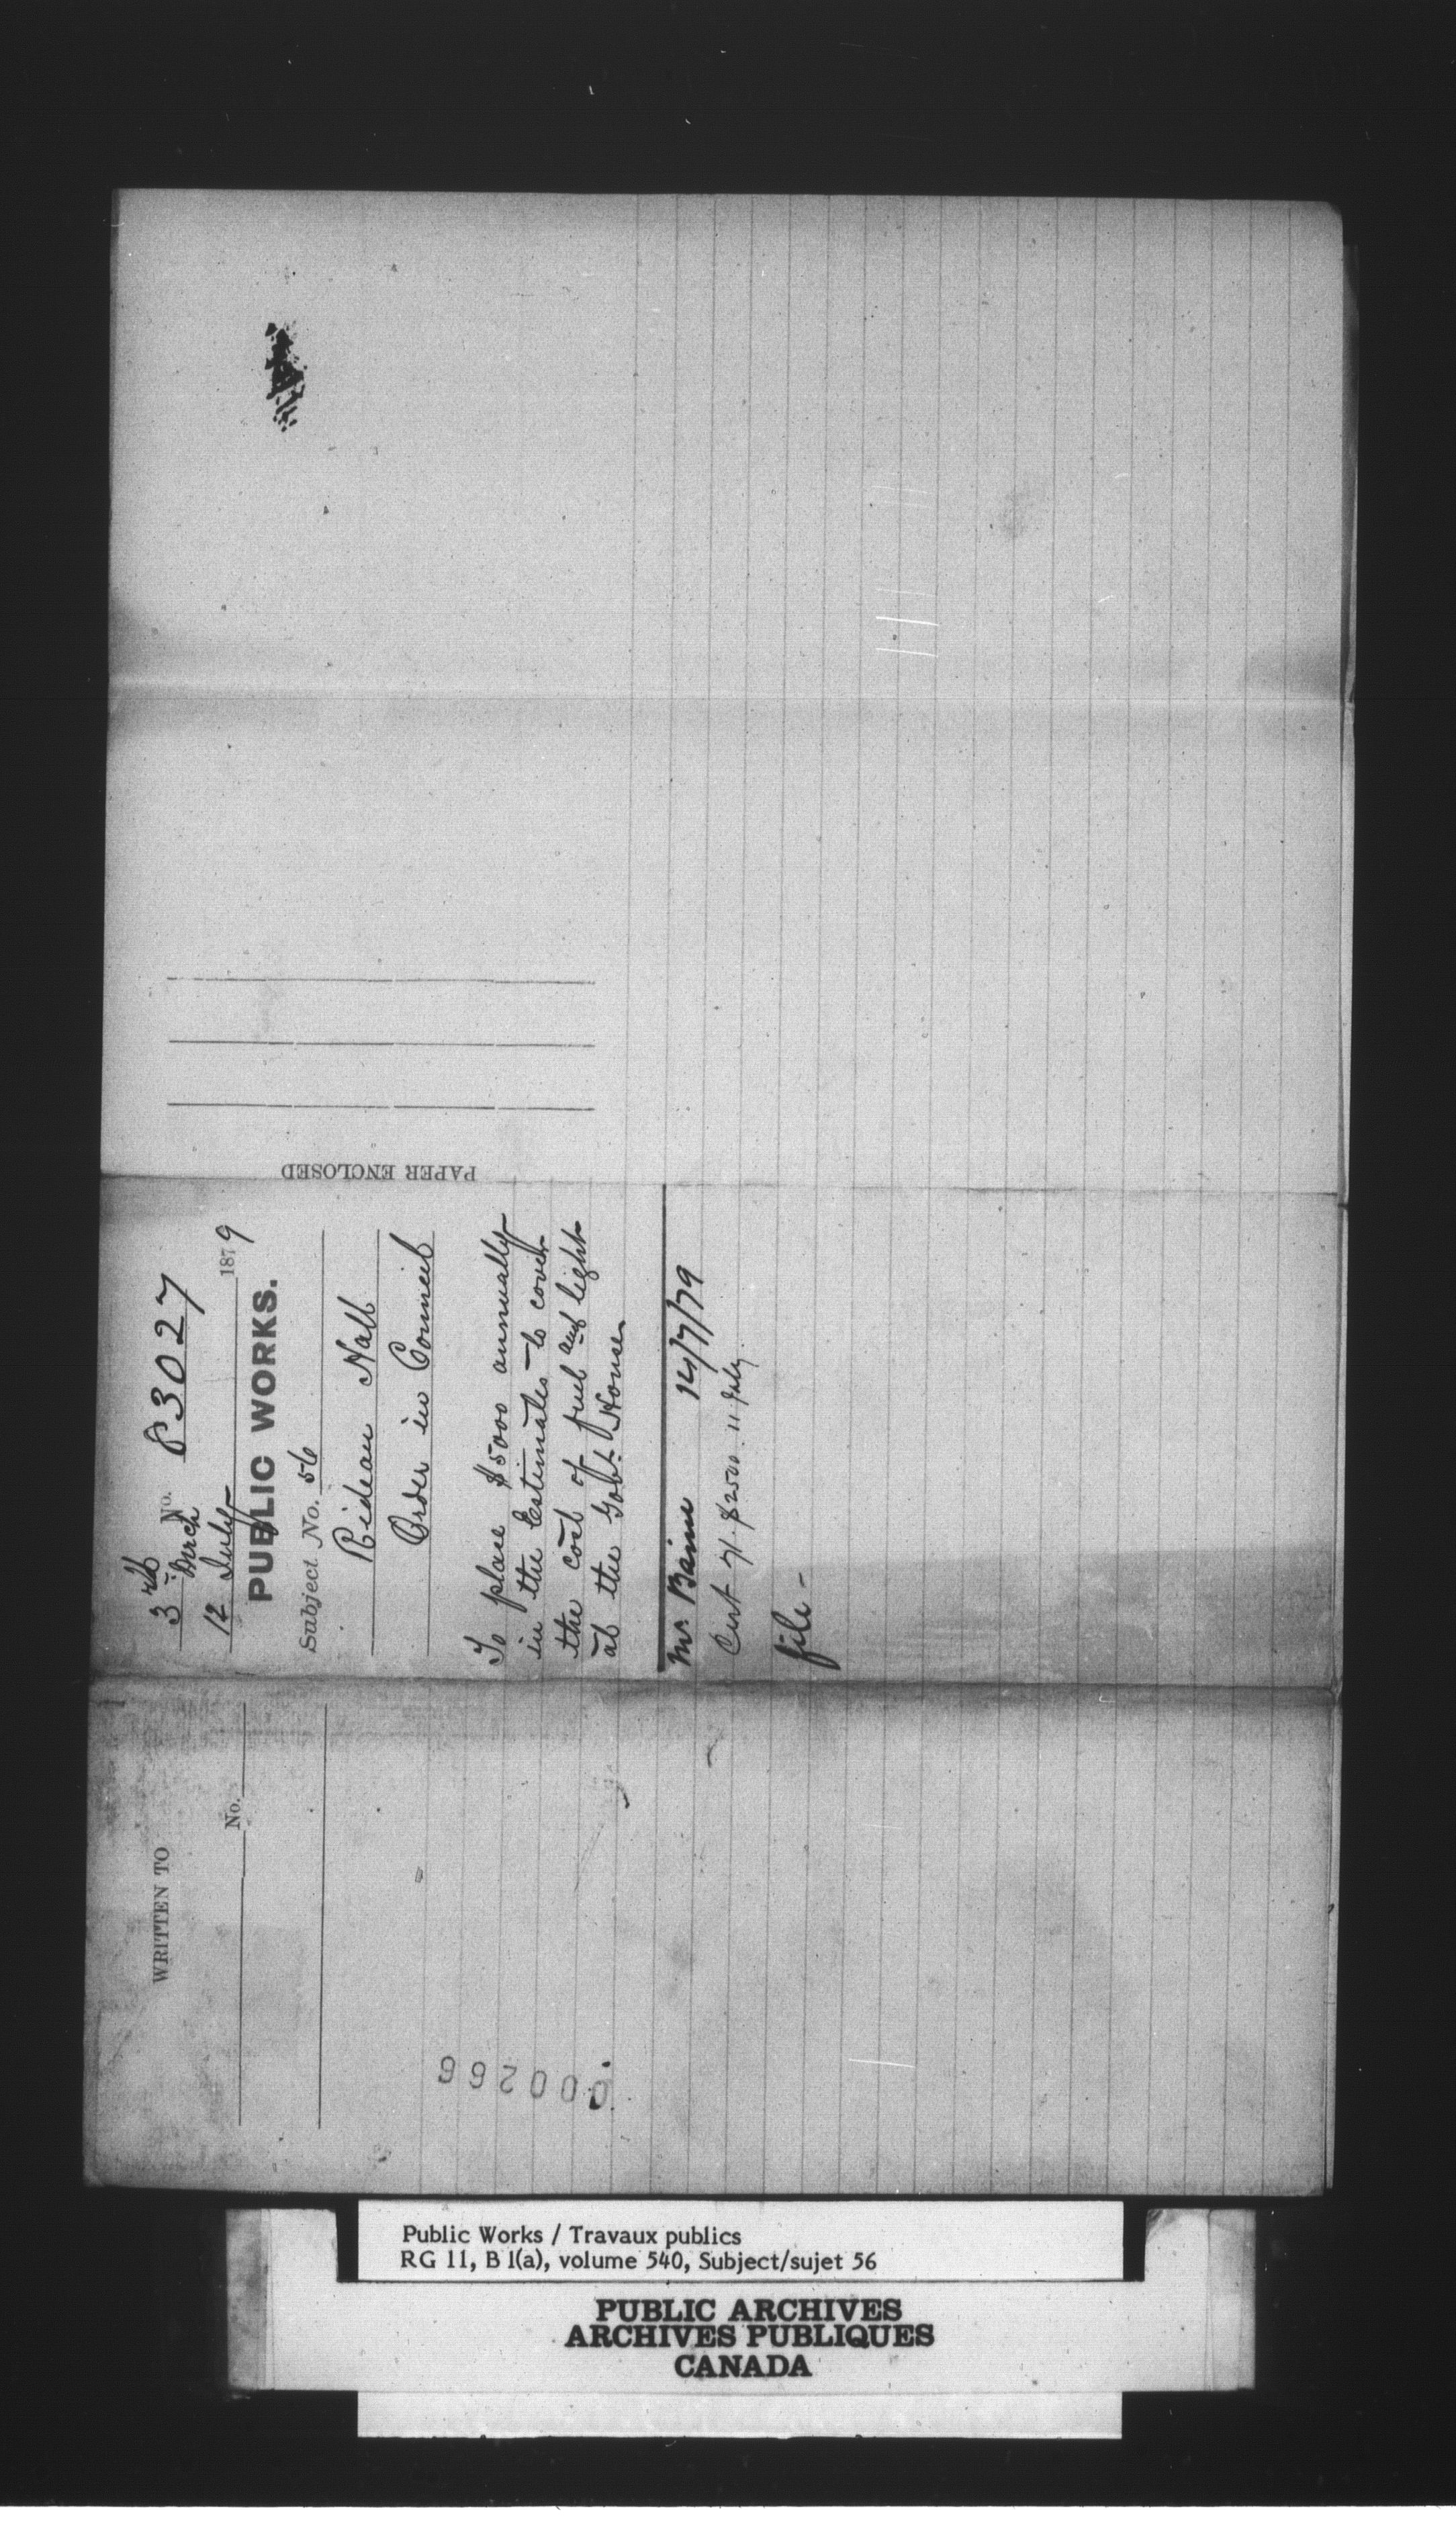 WRITTEN TO
No.
3rd Direct No. 83027
12 July 1879
PUBLIC WORKS.
Subject No. 56
Rideau Hall
Order in Council
To place $5000 annually
in the Estimates to cover
the cost of fuel and light
at the Govt. House
Mr. Baine 14/7/79
Cert 71. $2500. 11 July.
file -
PAPER ENCLOSED
000266
Public Works / Travaux publics
RG 11, B 1(a), volume 540, Subject/sujet 56
PUBLIC ARCHIVES
ARCHIVES PUBLIQUES
CANADA